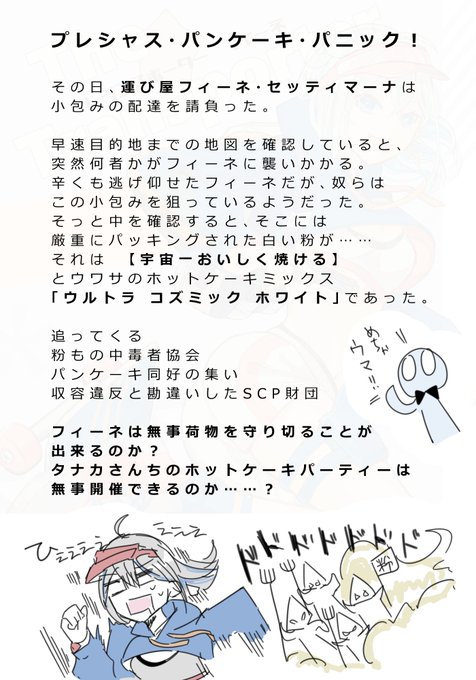 プレシャス・パンケーキ・パニック！
その日、運び屋フィーネ・セッティマーナは
小包みの配達を請負った。
早速目的地までの地図を確認していると、
突然何者かがフィーネに襲いかかる。
辛くも逃げ仰せたフィーネだが、奴らは
この小包みを狙っているようだった。
そっと中を確認すると、そこには
厳重にパッキングされた白い粉が……
それは　【宇宙一おいしく焼ける】
とウワサのホットケーキミックス
「ウルトラ コズミック ホワイト」であった。
追ってくる
粉もの中毒者協会
パンケーキ同好の集い
収容違反と勘違いしたSCP財団
めちゃ
ウマ!!
フィーネは無事荷物を守り切ることが
出来るのか？
タナカさんちのホットケーキパーティーは
無事開催できるのか……？
ひええええ
ええええ
ドドドドドドドド
粉